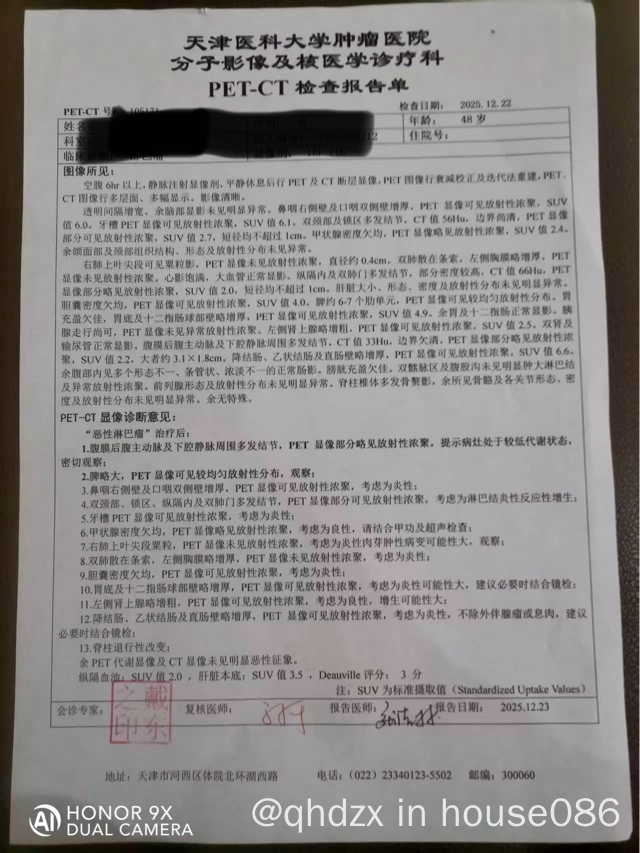 天津医科大学肿瘤医院
分子影像及核医学诊疗科
PET-CT 检查报告单
PET-CT 号 105171
检查日期： 2025.12.22
姓名
年龄： 48 岁
科室
住院号：
临床
图像所见：
空腹 6hr 以上，静脉注射显像剂，平静休息后行 PET 及 CT 断层显像，PET 图像行衰减校正及迭代法重建，PET、
CT 图像行多层面、多幅显示。影像清晰。
透明间隔增宽。余脑部显影未见明显异常。鼻咽右侧壁及口咽双侧壁增厚，PET 显像可见放射性浓聚，SUV
值 6.0。牙槽 PET 显像可见放射性浓聚，SUV 值 6.1。双颈部及锁区多发结节，CT 值 56Hu，边界尚清，PET 显像
部分可见放射性浓聚，SUV 值 2.7，短径均不超过 1cm。甲状腺密度欠均，PET 显像略见放射性浓聚，SUV 值 2.4。
余颌面部及颈部组织结构、形态及放射性分布未见异常。
右肺上叶尖段可见粟粒影，PET 显像未见放射性浓聚，直径约 0.4cm。双肺散在条索，左侧胸膜略增厚，PET
显像未见放射性浓聚。心影饱满，大血管正常显影。纵隔内及双肺门多发结节，部分密度较高，CT 值 66Hu，PET
显像部分略见放射性浓聚，SUV 值 2.0，短径均不超过 1cm。肝脏大小、形态、密度及放射性分布未见明显异常。
胆囊密度欠均，PET 显像可见放射性浓聚，SUV 值 4.0。脾约 6-7 个肋单元，PET 显像可见较均匀放射性分布。胃
充盈欠佳，胃底及十二指肠球部壁略增厚，PET 显像可见放射性浓聚，SUV 值 4.9。余胃及十二指肠正常显影。胰
腺走行尚可，PET 显像未见异常放射性浓聚。左侧肾上腺略增粗，PET 显像可见放射性浓聚，SUV 值 2.5。双肾及
输尿管正常显影。腹膜后腹主动脉及下腔静脉周围多发结节，CT 值 33Hu，边界欠清，PET 显像部分略见放射性浓
聚，SUV 值 2.2，大者约 3.1×1.8cm。降结肠、乙状结肠及直肠壁略增厚，PET 显像可见放射性浓聚，SUV 值 6.6。
余腹部内见多个形态不一、条管状、浓淡不一的正常肠影。膀胱充盈欠佳。双髂脉区及腹股沟未见明显肿大淋巴结
及异常放射性浓聚。前列腺形态及放射性分布未见明显异常。脊柱椎体多发骨赘影，余所见骨骼及各关节形态、密
度及放射性分布未见明显异常。余无特殊。
PET-CT 显像诊断意见：
“恶性淋巴瘤”治疗后：
1.腹膜后腹主动脉及下腔静脉周围多发结节，PET 显像部分略见放射性浓聚，提示病灶处于较低代谢状态，
密切观察；
2.脾略大，PET 显像可见较均匀放射性分布，观察；
3.鼻咽右侧壁及口咽双侧壁增厚，PET 显像可见放射性浓聚，考虑为炎性；
4.双颈部、锁区、纵隔内及双肺门多发结节，PET 显像部分可见放射性浓聚，考虑为淋巴结炎性反应性增生；
5.牙槽 PET 显像可见放射性浓聚，考虑为炎性；
6.甲状腺密度欠均，PET 显像略见放射性浓聚，考虑为良性，请结合甲功及超声检查；
7.右肺上叶尖段粟粒，PET 显像未见放射性浓聚，考虑为炎性肉芽肿性病变可能性大，观察；
8.双肺散在条索，左侧胸膜略增厚，PET 显像未见放射性浓聚，考虑为炎性；
9.胆囊密度欠均，PET 显像可见放射性浓聚，考虑为炎性；
10.胃底及十二指肠球部壁略增厚，PET 显像可见放射性浓聚，考虑为炎性可能性大，建议必要时结合镜检；
11.左侧肾上腺略增粗，PET 显像可见放射性浓聚，考虑为良性，增生可能性大；
12.降结肠、乙状结肠及直肠壁略增厚，PET 显像可见放射性浓聚，考虑为炎性，不除外伴腺瘤或息肉，建议
必要时结合镜检；
13.脊柱退行性改变；
余 PET 代谢显像及 CT 显像未见明显恶性征象。
纵隔血池：SUV 值 2.0 ，肝脏本底：SUV 值 3.5 ，Deauville 评分： 3 分
注：SUV 为标准摄取值（Standardized Uptake Values）
会诊专家：
戴东之印
复核医师：
报告医师：
报告日期： 2025.12.23
地址：天津市河西区体院北环湖西路
电话：（022）23340123-5502
邮编：300060
HONOR 9X
AI DUAL CAMERA
@qhdzx in house086